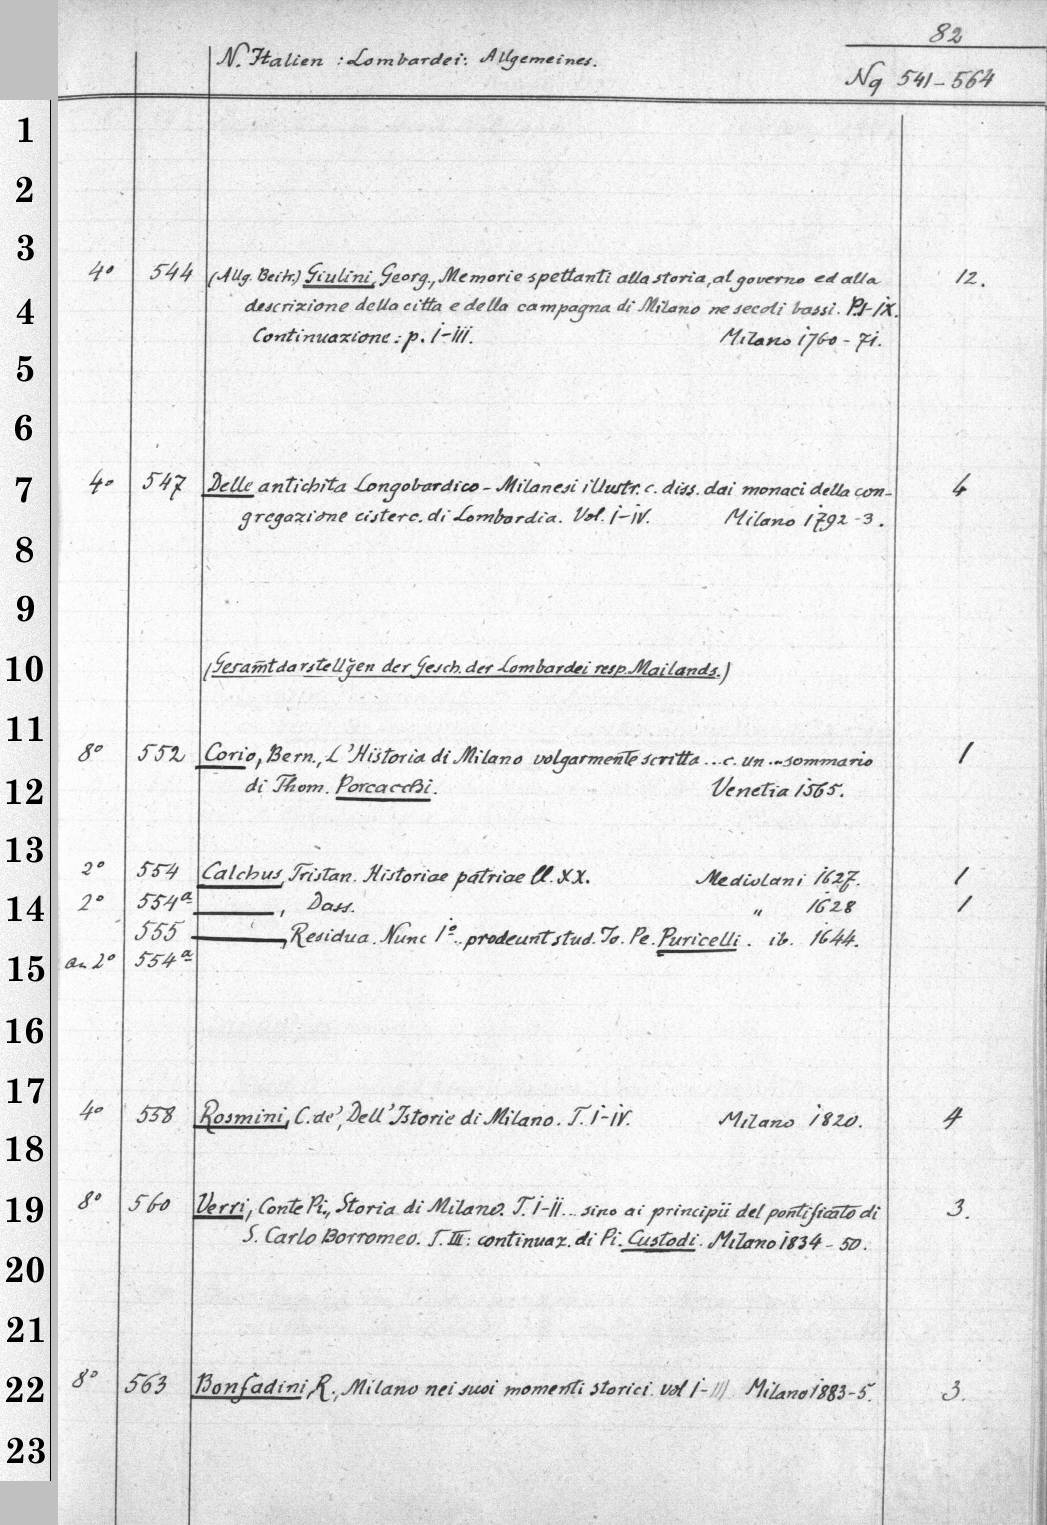 82
N. Italien : Lombardei: Allgemeines.
Nq 541-564
1
2
3
4° 544 (Allg. Beitr.) Giulini, Georg., Memorie spettanti alla storia, al governo ed alla 12.
4 descrizione della citta e della campagna di Milano ne secoli bassi. P. I-IX.
Continuazione: p. I-III. Milano 1760-71.
5
6
7 4° 547 Delle antichita Longobardico-Milanesi illustr. c. diss. dai monaci della con- 4
gregazione cisterc. di Lombardia. Vol. I-IV. Milano 1792-3.
8
9
10 (Gesam̄tdarstell'gen der Gesch. der Lombardei resp. Mailands.)
11
8° 552 Corio, Bern., L'Historia di Milano volgarmente scritta ... c. un ... sommario 1
12 di Thom. Porcacchi. Venetia 1565.
13
2° 554 Calchus, Tristan. Historiae patriae ll. XX. Mediolani 1627. 1
14 2° 554a ———, Dass. " 1628 1
555 ———, Residua. Nunc 1° .. prodeunt stud. Jo. Pe. Puricelli. ib. 1644.
15 an 2° 554a
16
17
4° 558 Rosmini, C. de', Dell'Istorie di Milano. T. I-IV. Milano 1820. 4
18
19 8° 560 Verri, Conte Pi., Storia di Milano. T. I-II ... sino ai principii del pontificato di 3.
S. Carlo Borromeo. T. III: continuaz. di Pi. Custodi. Milano 1834-50.
20
21
22 8° 563 Bonfadini, R., Milano nei suoi momenti storici. vol I-III Milano 1883-5. 3.
23